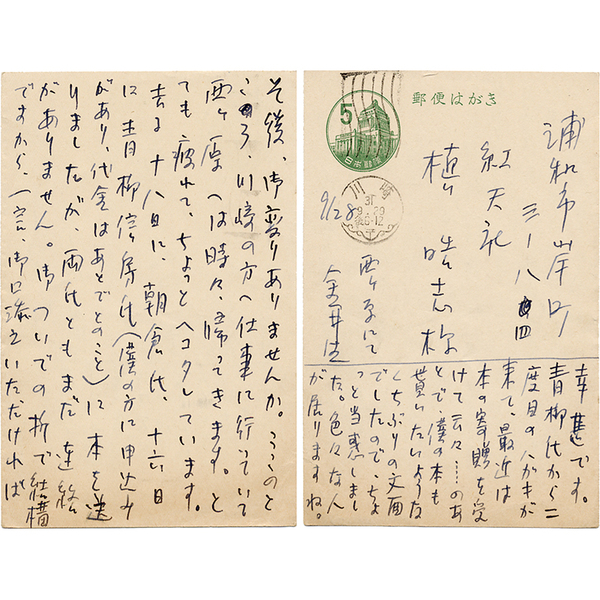 その後、御変りありませんか。ここのと
ころ、川崎の方へ仕事に行っていて
西ヶ原へは時々、帰ってきます。と
ても疲れて、ちょっとヘコタレています。
去る十八日に、朝倉氏、十六日
に青柳信房氏(僕の方に申込み
があり、代金はあとでとのこと)に本を送
りましたが、両氏ともまだ連絡
がありません。御ついでの折で結構
ですから、一言、御口添えいただければ
郵便はがき
5
日本郵便
川崎
31
9.29
后6-12
9/28
浦和市岸町
三ー八四
紅天社
植 晧志様
西ヶ原にて
金井
幸甚です。
青柳氏から二
度目のハガキが
来て、最近は
本の寄贈を受
けて云々……のあ
とで、僕の本も
貰いたいような
くちぶりの文面
でしたので、ちょ
っと当惑しまし
た。色々な人
が居りますね。